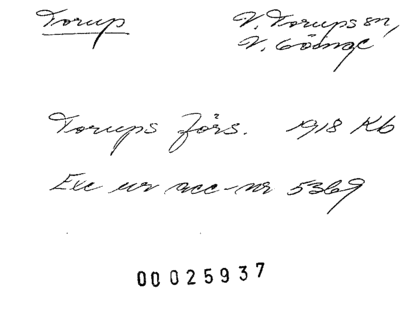 Torup
V. Torups sn,
V. Göinge
Torups förs. 1918 Kb
Exc ur acc-nr 5369
00025937